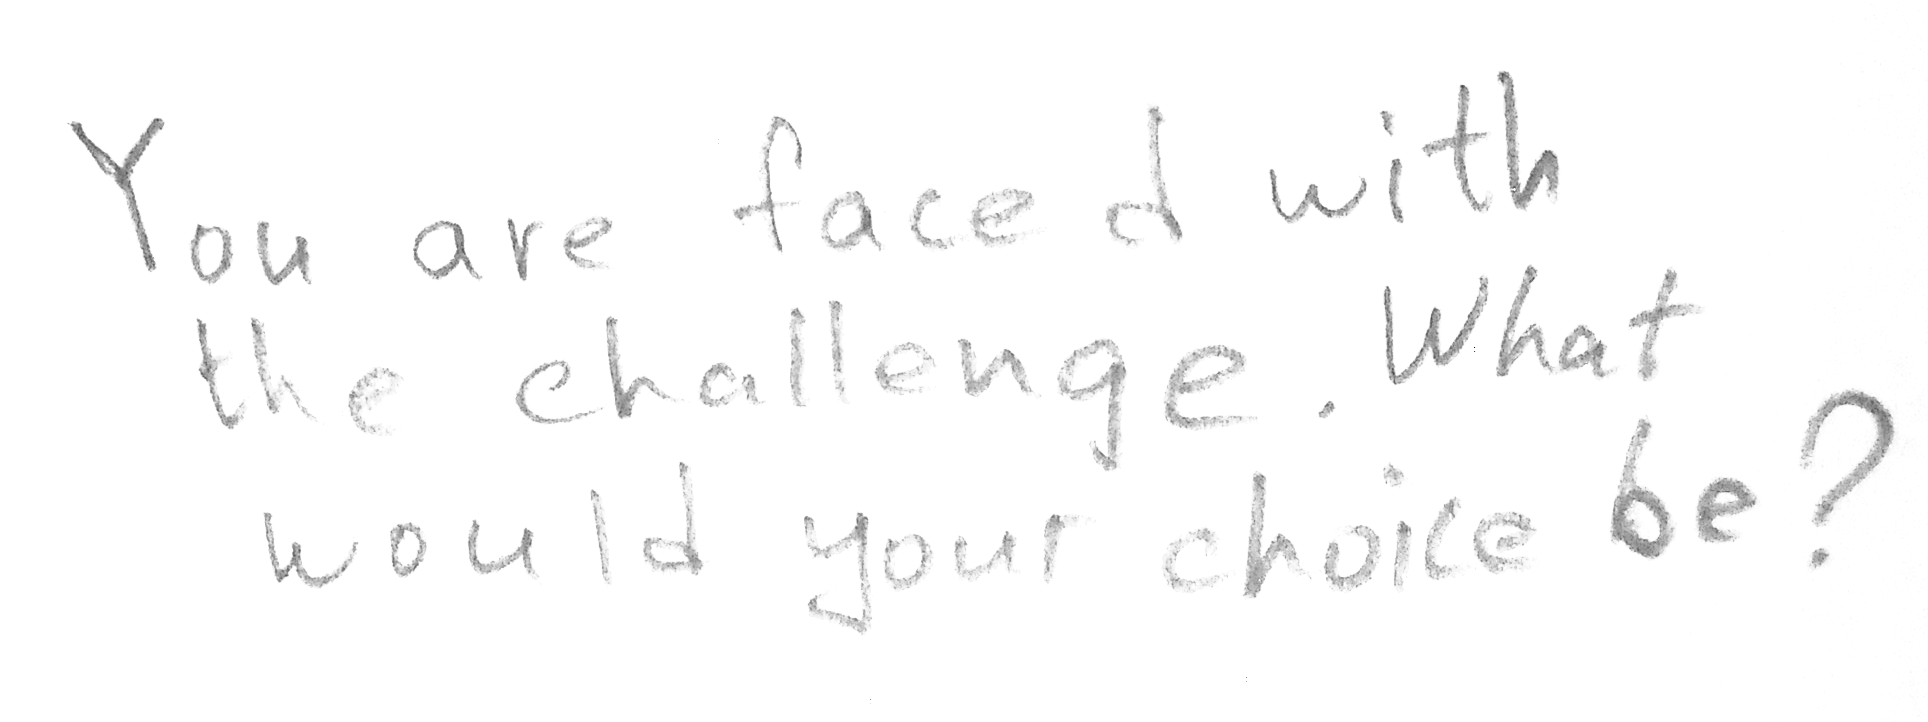 You are faced with
the challenge. What
would your choice be?